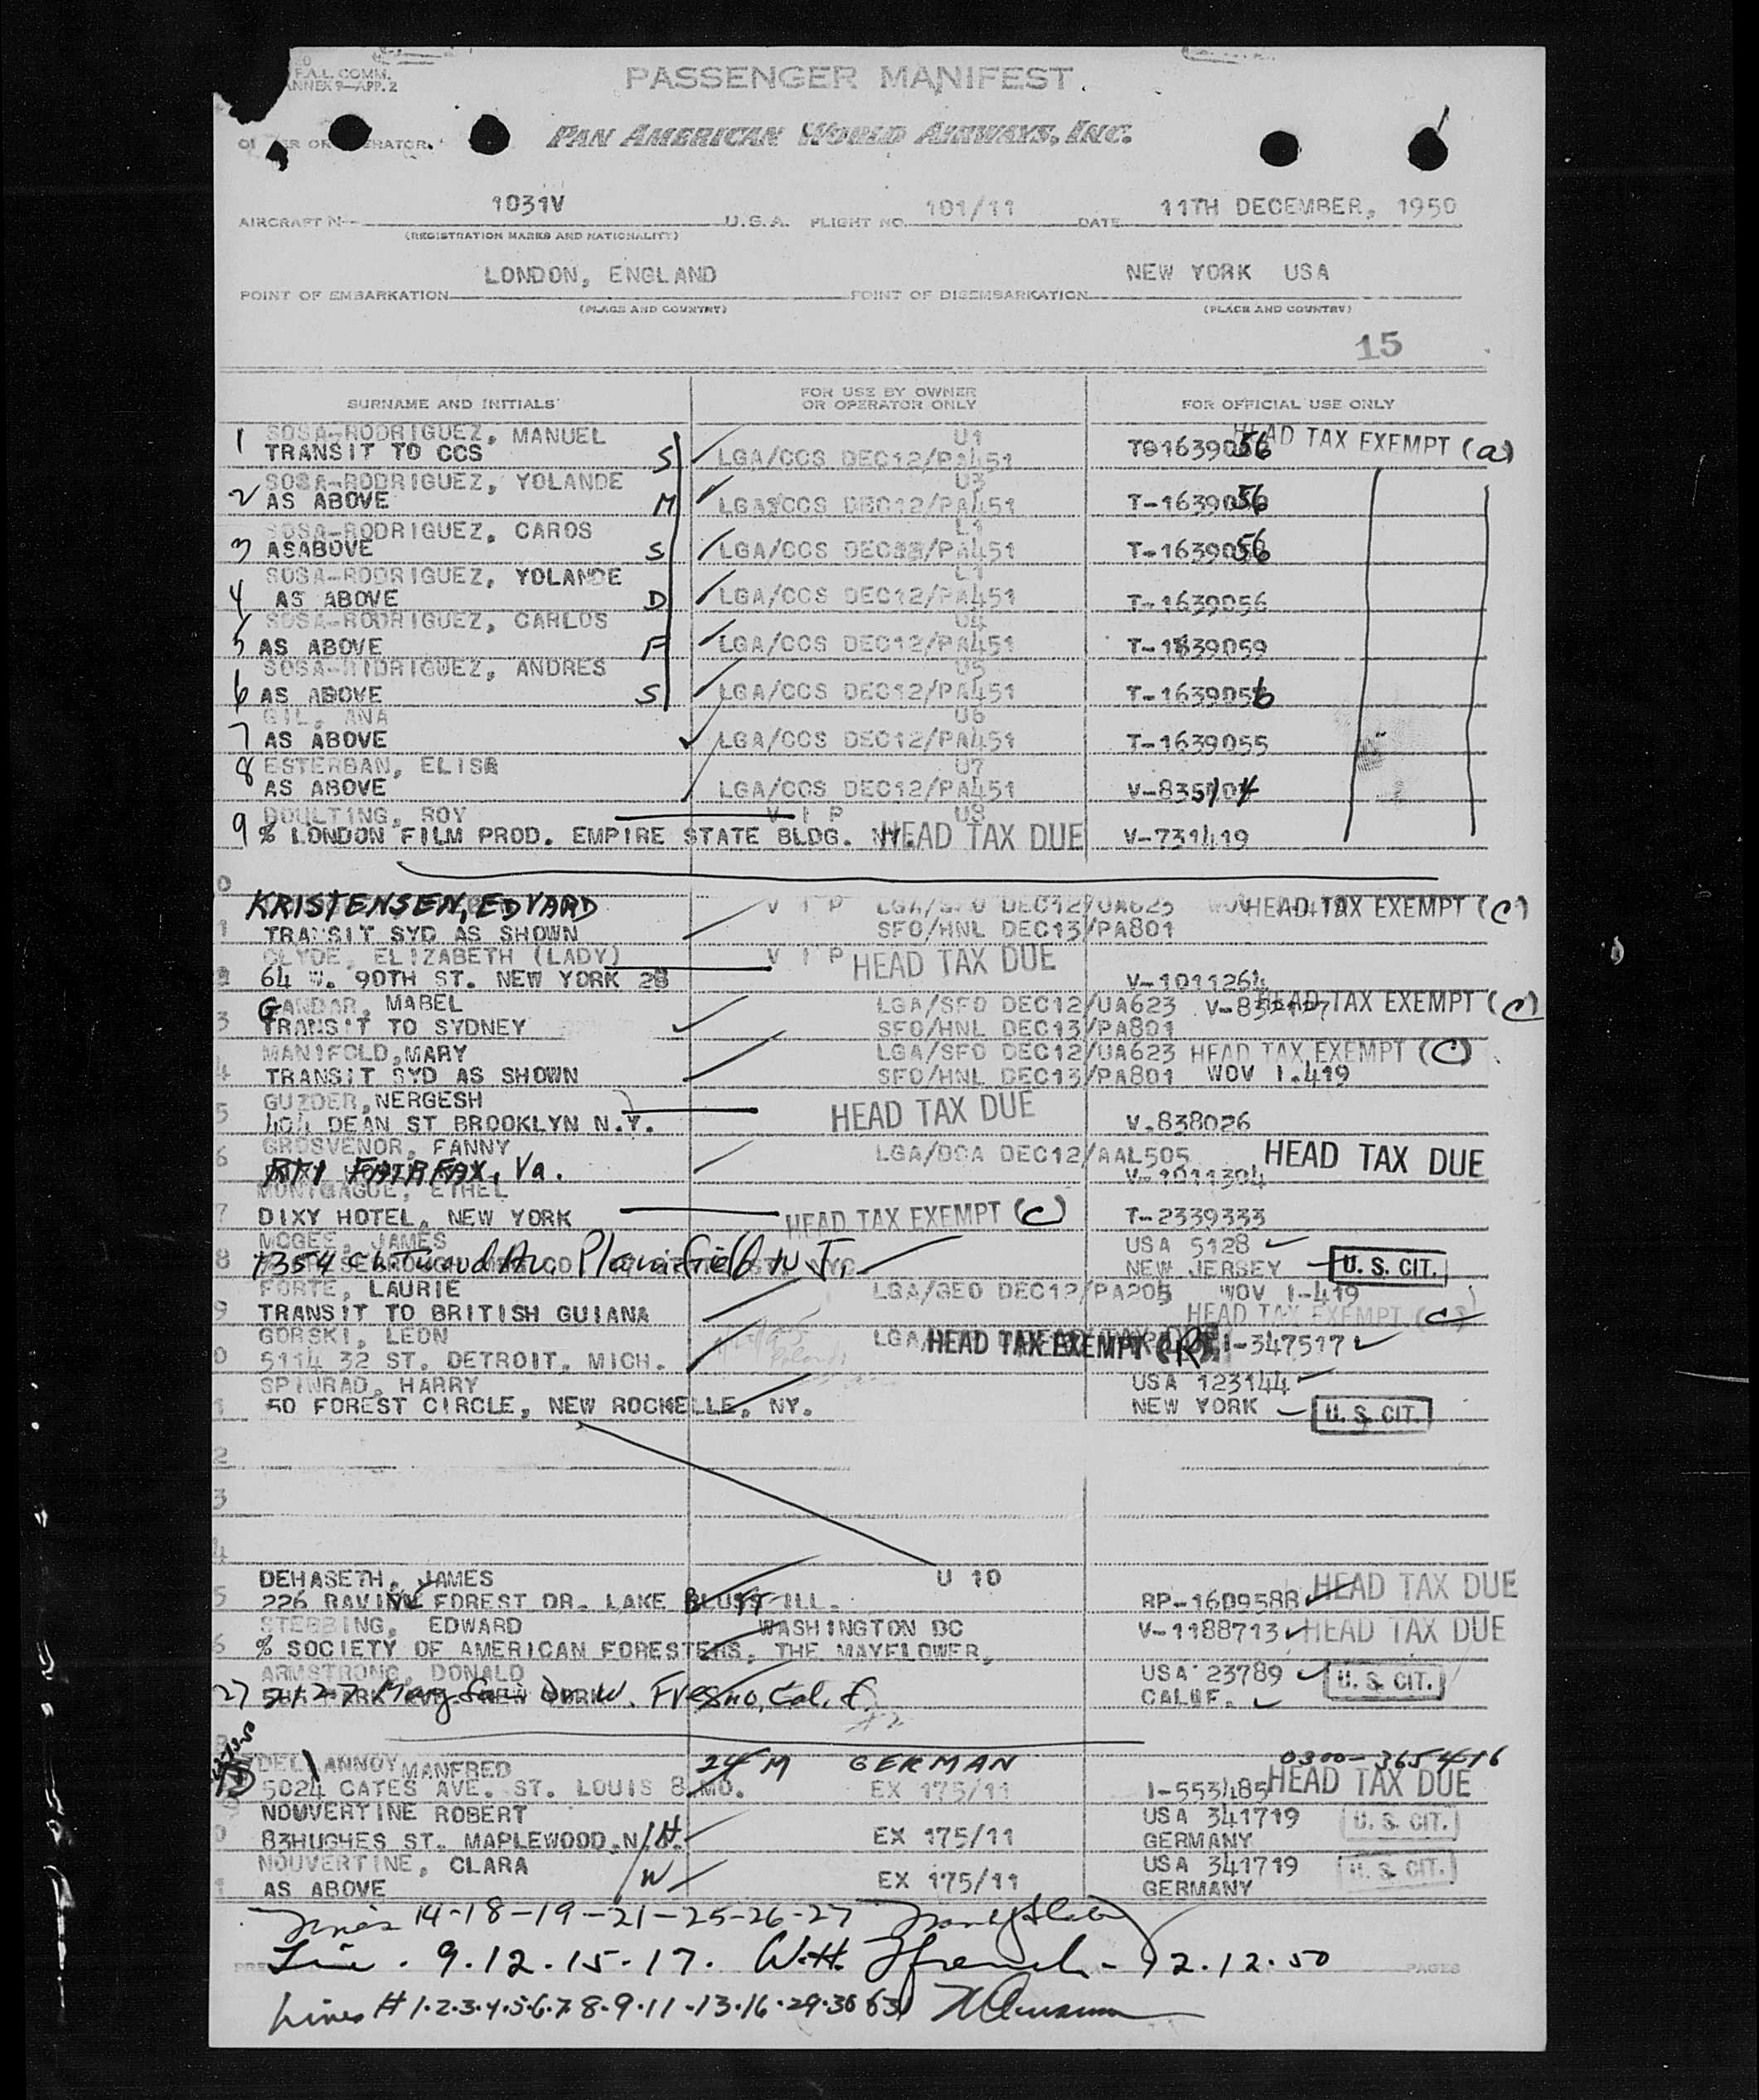 F.A.L. COMM.
ANNEX 9—APP. 2
PASSENGER MANIFEST
PAN AMERICAN WORLD AIRWAYS, INC.
AIRCRAFT N— 1031V U.S.A. FLIGHT NO. 101/11 DATE 11TH DECEMBER, 1950
(REGISTRATION MARKS AND NATIONALITY)
POINT OF EMBARKATION LONDON, ENGLAND POINT OF DISEMBARKATION NEW YORK USA
(PLACE AND COUNTRY) (PLACE AND COUNTRY)
15
SURNAME AND INITIALS FOR USE BY OWNER OR OPERATOR ONLY FOR OFFICIAL USE ONLY
1 SOSA-RODRIGUEZ, MANUEL U1 HEAD TAX EXEMPT (a)
TRANSIT TO CCS S LGA/CCS DEC12/PA451
SOSA-RODRIGUEZ, YOLANDE U3
2 AS ABOVE M LGA/CCS DEC12/PA451 T-1639056
SOSA-RODRIGUEZ, CAROS L1
3 ASABOVE S LGA/CCS /PA451 T-1639056
SOSA-RODRIGUEZ, YOLANDE L1
4 AS ABOVE D LGA/CCS DEC12/PA451 T-1639056
SOSA-RODRIGUEZ, CARLOS U4
5 AS ABOVE F LGA/CCS DEC12/PA451 T-1639059
SOSA-RIDRIGUEZ, ANDRES U5
6 AS ABOVE S LGA/CCS DEC12/PA451 T-1639056
GIL, ANA U6
7 AS ABOVE LGA/CCS DEC12/PA451 T-1639055
8 ESTERBAN, ELISA U7
AS ABOVE LGA/CCS DEC12/PA451
DOULTING, ROY V I P U8
9 % LONDON FILM PROD. EMPIRE STATE BLDG. NY. HEAD TAX DUE V-731419
0
KRISTENSEN, EDVARD V I P LGA/SFO DEC12/UA623 HEAD TAX EXEMPT (C)
1 TRANSIT SYD AS SHOWN SFO/HNL DEC13/PA801
CLYDE, ELIZABETH (LADY) V I P HEAD TAX DUE
64 W. 90TH ST. NEW YORK V-1011264
GANDAR, MABEL LGA/SFO DEC12/UA623 HEAD TAX EXEMPT (C)
3 TRANSIT TO SYDNEY SFO/HNL DEC13/PA801
MANIFOLD, MARY LGA/SFO DEC12/UA623 HEAD TAX EXEMPT (C)
4 TRANSIT SYD AS SHOWN SFO/HNL DEC13/PA801 WOV 1.419
GUZDER, NERGESH
5 404 DEAN ST BROOKLYN N.Y. HEAD TAX DUE V.838026
GROSVENOR, FANNY
6 FAIRFAX, Va. LGA/DCA DEC12/AAL505 HEAD TAX DUE
V-1011304
MONTGAGUE, ETHEL
7 DIXY HOTEL, NEW YORK HEAD TAX EXEMPT (C) T-2339333
MCGEE, JAMES USA 5128
8 1354 Plainfield N.J. NEW JERSEY U. S. CIT.
FORTE, LAURIE LGA/GEO DEC12/PA205 WOV 1-419
9 TRANSIT TO BRITISH GUIANA HEAD TAX EXEMPT (C)
GORSKI, LEON HEAD TAX EXEMPT (R) I-347517
0 5114 32 ST. DETROIT, MICH.
SPINRAD, HARRY USA 123144
1 50 FOREST CIRCLE, NEW ROCHELLE, NY. NEW YORK U. S. CIT.
2
3
4
DEHASETH, JAMES U 10
5 226 RAVINE FOREST DR. LAKE BLUFF ILL. HEAD TAX DUE
STEBBING, EDWARD WASHINGTON DC V-1188713 HEAD TAX DUE
6 % SOCIETY OF AMERICAN FORESTERS, THE MAYFLOWER,
ARMSTRONG, DONALD USA 23789 U. S. CIT.
27 Fresno, Calif. CALIF.
DELANNOY MANFRED 24 M GERMAN 0300-365416
5024 CATES AVE. ST. LOUIS 8 MO. EX 175/11 I-553485 HEAD TAX DUE
NOUVERTINE ROBERT USA 341719 U. S. CIT.
0 83HUGHES ST. MAPLEWOOD, N.J. EX 175/11 GERMANY
NOUVERTINE, CLARA USA 341719 U. S. CIT.
1 AS ABOVE W EX 175/11 GERMANY
14-18-19-21-25-26-27
Line . 9.12.15.17. W.H. French - 12.12.50
PAGES
Lines # 1.2.3.4.5.6.7.8.9.11.13.16.29.30